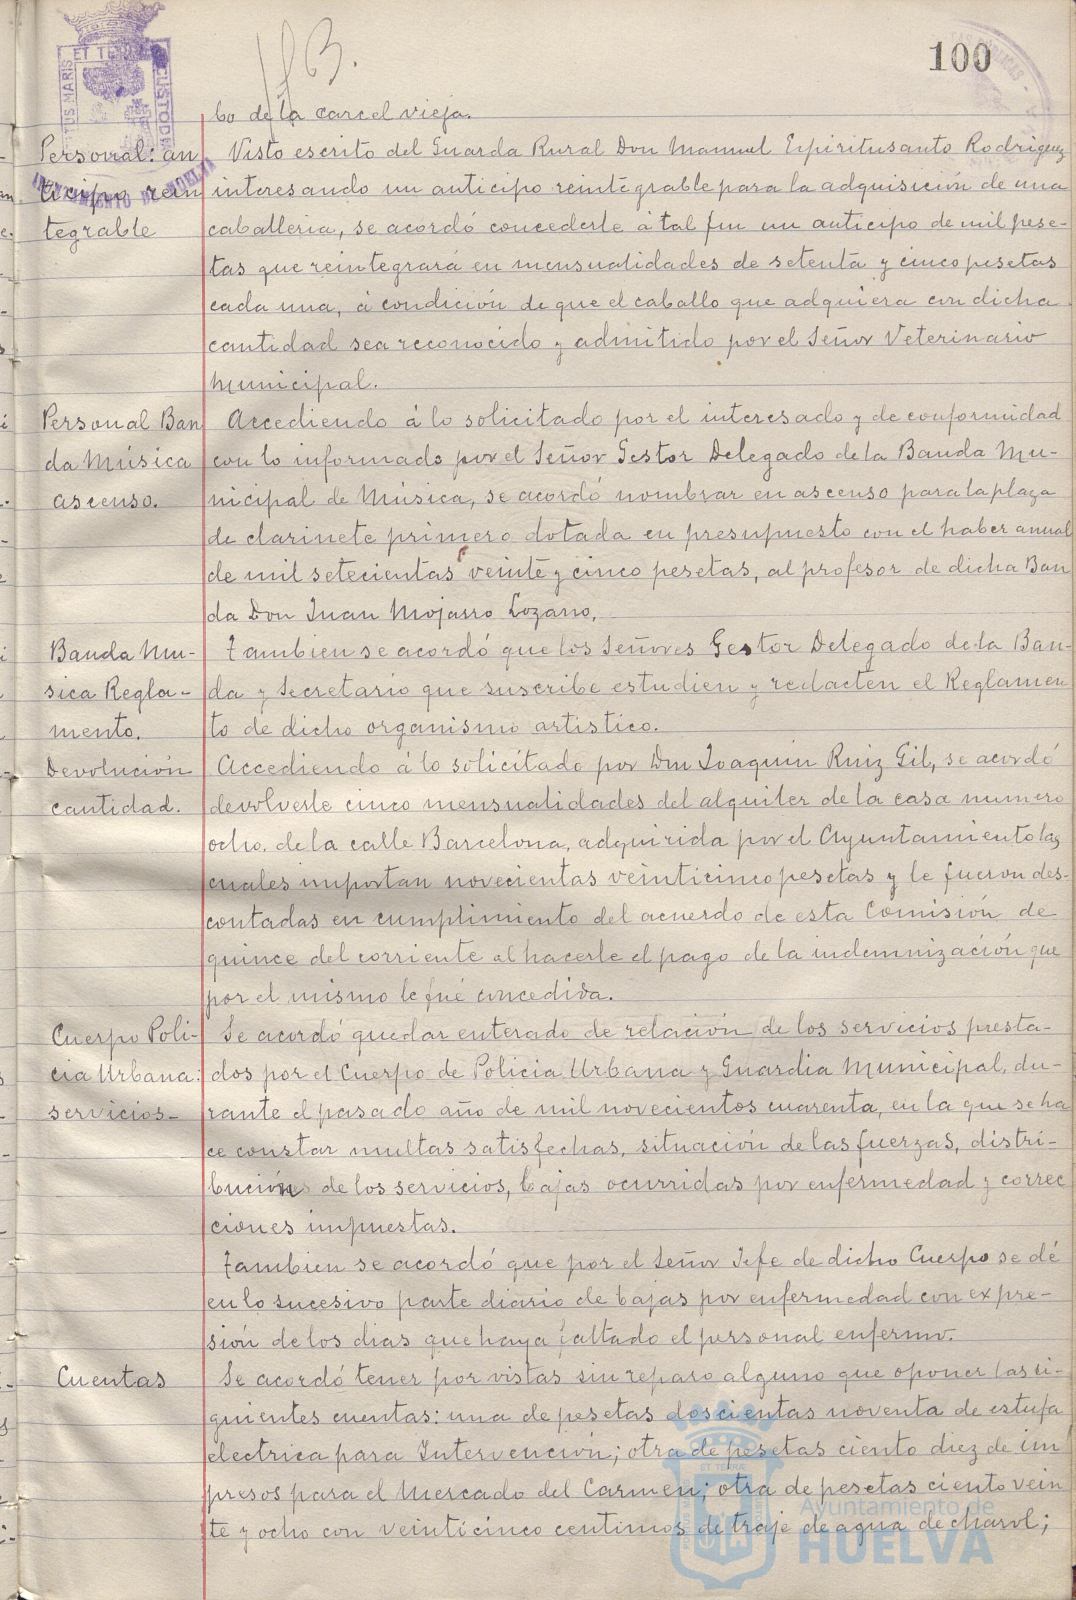 100
bo de la carcel vieja.
Personal: an
ticipo rein
tegrable
Visto escrito del Guarda Rural Don Manuel Espiritusanto Rodriguez
interesando un anticipo reintegrable para la adquisición de una
caballeria, se acordó concederle á tal fin un anticipo de mil pese-
tas que reintegrará en mensualidades de setenta y cinco pesetas
cada una, á condición de que el caballo que adquiera con dicha
cantidad sea reconocido y admitido por el Señor Veterinario
Municipal.
Personal Ban
da Música
ascenso.
Accediendo á lo solicitado por el interesado y de conformidad
con lo informado por el Señor Gestor Delegado de la Banda Mu-
nicipal de Música, se acordó nombrar en ascenso para la plaza
de clarinete primero dotada en presupuesto con el haber anual
de mil setecientas veinte y cinco pesetas, al profesor de dicha Ban
da Don Juan Mojarro Lozano.
Banda Mu-
sica Regla-
mento.
Tambien se acordó que los Señores Gestor Delegado de la Ban-
da y Secretario que suscribe estudien y redacten el Reglamen
to de dicho organismo artistico.
Devolución
cantidad.
Accediendo á lo solicitado por Don Joaquin Ruiz Gil, se acordó
devolverle cinco mensualidades del alquiler de la casa numero
ocho de la calle Barcelona, adquirida por el Ayuntamiento las
cuales importan novecientas veinticinco pesetas y le fueron des-
contadas en cumplimiento del acuerdo de esta Comisión de
quince del corriente al hacerle el pago de la indemnización que
por el mismo le fué concedida.
Cuerpo Poli-
cia Urbana:
servicios-
Se acordó quedar enterado de relación de los servicios presta-
dos por el Cuerpo de Policia Urbana y Guardia Municipal, du-
rante el pasado año de mil novecientos cuarenta, en la que se ha
ce constar multas satisfechas, situación de las fuerzas, distri-
bución de los servicios, bajas ocurridas por enfermedad y correc
ciones impuestas.
Tambien se acordó que por el Señor Jefe de dicho Cuerpo se dé
en lo sucesivo parte diario de bajas por enfermedad con expre-
sión de los dias que haya faltado el personal enfermo.
Cuentas
Se acordó tener por vistas sin reparo alguno que oponer las si-
guientes cuentas: una de pesetas doscientas noventa de estufa
electrica para Intervención; otra de pesetas ciento diez de im
presos para el Mercado del Carmen; otra de pesetas ciento vein
te y ocho con veinticinco centimos de traje de agua de charol;
Ayuntamiento de
HUELVA